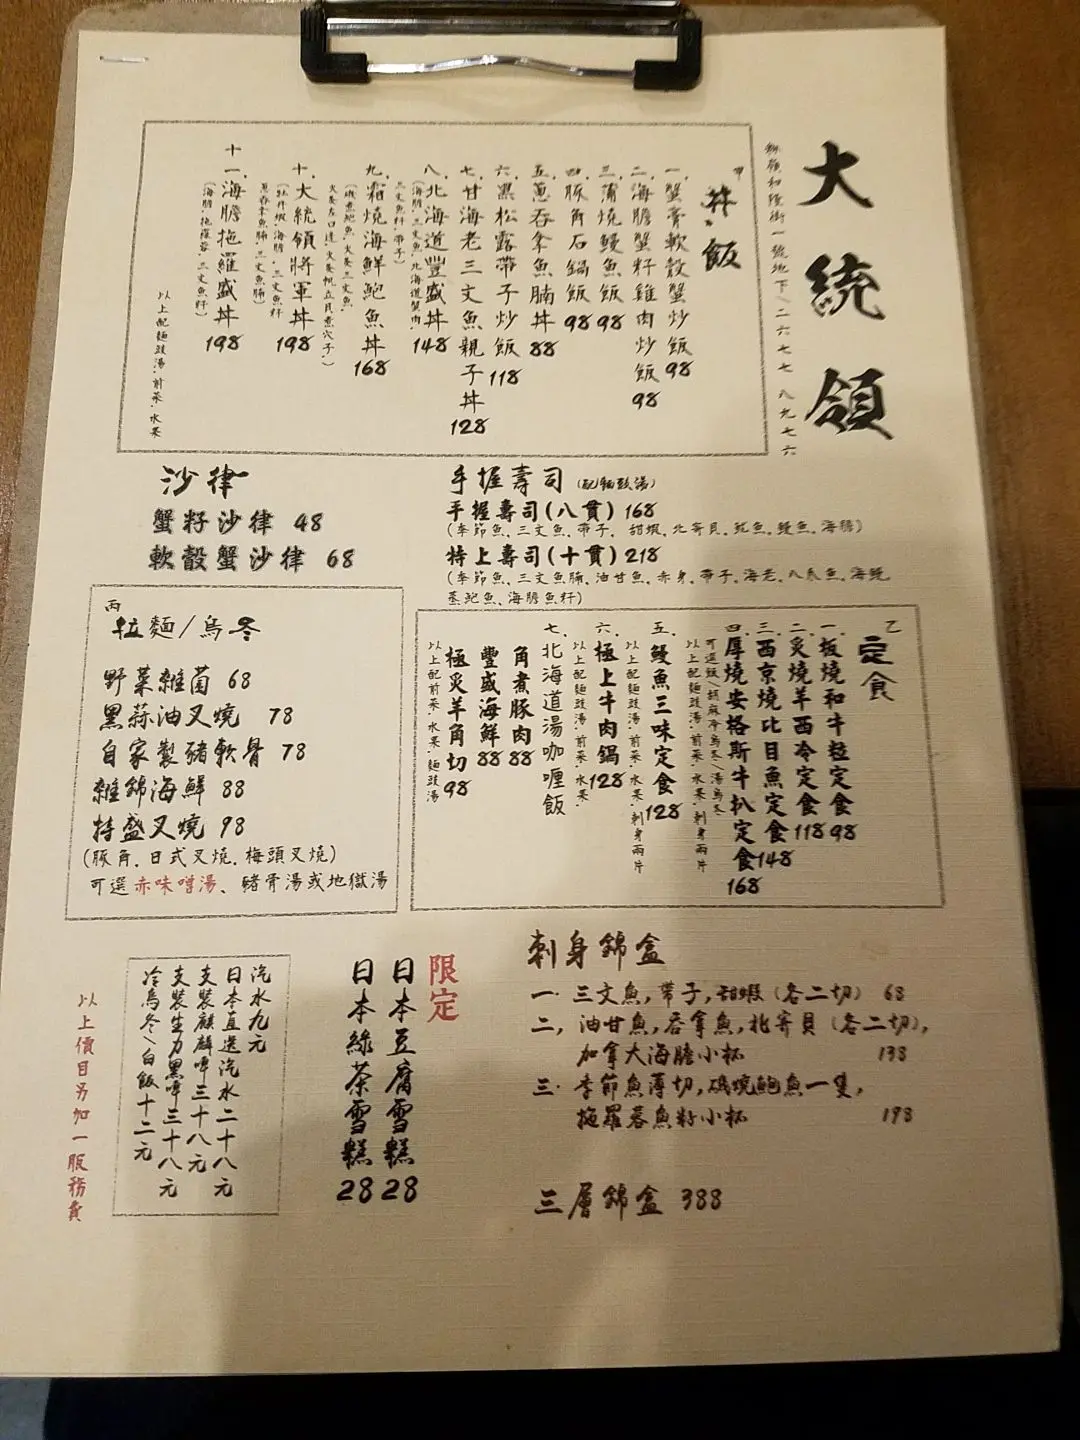 大統領
粉嶺和隆街一號地下 二六七七 八九七六
甲
丼飯
一.蟹膏軟殼蟹炒飯98
二.海膽蟹籽雞肉炒飯98
三.蒲燒鰻魚飯98
四.豚角石鍋飯98
五.蔥吞拿魚腩丼88
六.黑松露帶子炒飯118
七.甘海老三文魚親子丼128
八.北海道豐盛丼148
(海膽.三文魚.北海道蟹肉.
三文魚籽.帶子)
九.霜燒海鮮鮑魚丼168
十.大統領將軍丼198
(牡丹蝦.海膽.三文魚籽
蔥吞拿魚腩.三文魚腩)
十一.海膽拖羅盛丼198
(海膽.拖羅蓉.三文魚籽)
以上配麵豉湯.前菜.水果
沙律
蟹籽沙律 48
軟殼蟹沙律 68
手握壽司(配麵豉湯)
手握壽司(八貫)168
(季節魚、三文魚、帶子、甜蝦、北寄貝、魷魚、鰻魚、海膽)
特上壽司(十貫)218
(季節魚、三文魚腩、油甘魚、赤身、帶子、海老、八爪魚、海鰻、
蒸鮑魚、海膽魚籽)
乙
定食
一.板燒和牛粒定食98
二.炙燒羊西冷定食118
三.西京燒比目魚定食148
四.厚燒安格斯牛扒定食168
可選飯/胡麻冷烏冬/湯烏冬
以上配麵豉湯.前菜.水果.刺身兩片
五.鰻魚三味定食128
以上配麵豉湯.前菜.水果.刺身兩片
六.極上牛肉鍋128
以上配麵豉湯.前菜.水果
七.北海道湯咖喱飯
角煮豚肉88
豐盛海鮮88
極炙羊角切98
以上配前菜.水果.麵豉湯
丙
拉麵/烏冬
野菜雜菌 68
黑蒜油叉燒 78
自家製豬軟骨 78
雜錦海鮮 88
特盛叉燒 98
(豚角.日式叉燒.梅頭叉燒)
可選赤味噌湯、豬骨湯或地獄湯
刺身錦盒
一. 三文魚,帶子,甜蝦(各二切) 68
二, 油甘魚,吞拿魚,北寄貝(各二切),
加拿大海膽小杯 138
三. 季節魚薄切,磯燒鮑魚一隻,
拖羅蓉魚籽小杯 198
三層錦盒 388
限定
日本豆腐雪糕28
日本綠茶雪糕28
汽水九元
日本直送汽水二十八元
支裝麒麟啤三十八元
支裝生力黑啤三十八元
冷烏冬/白飯十二元
以上價目另加一服務費